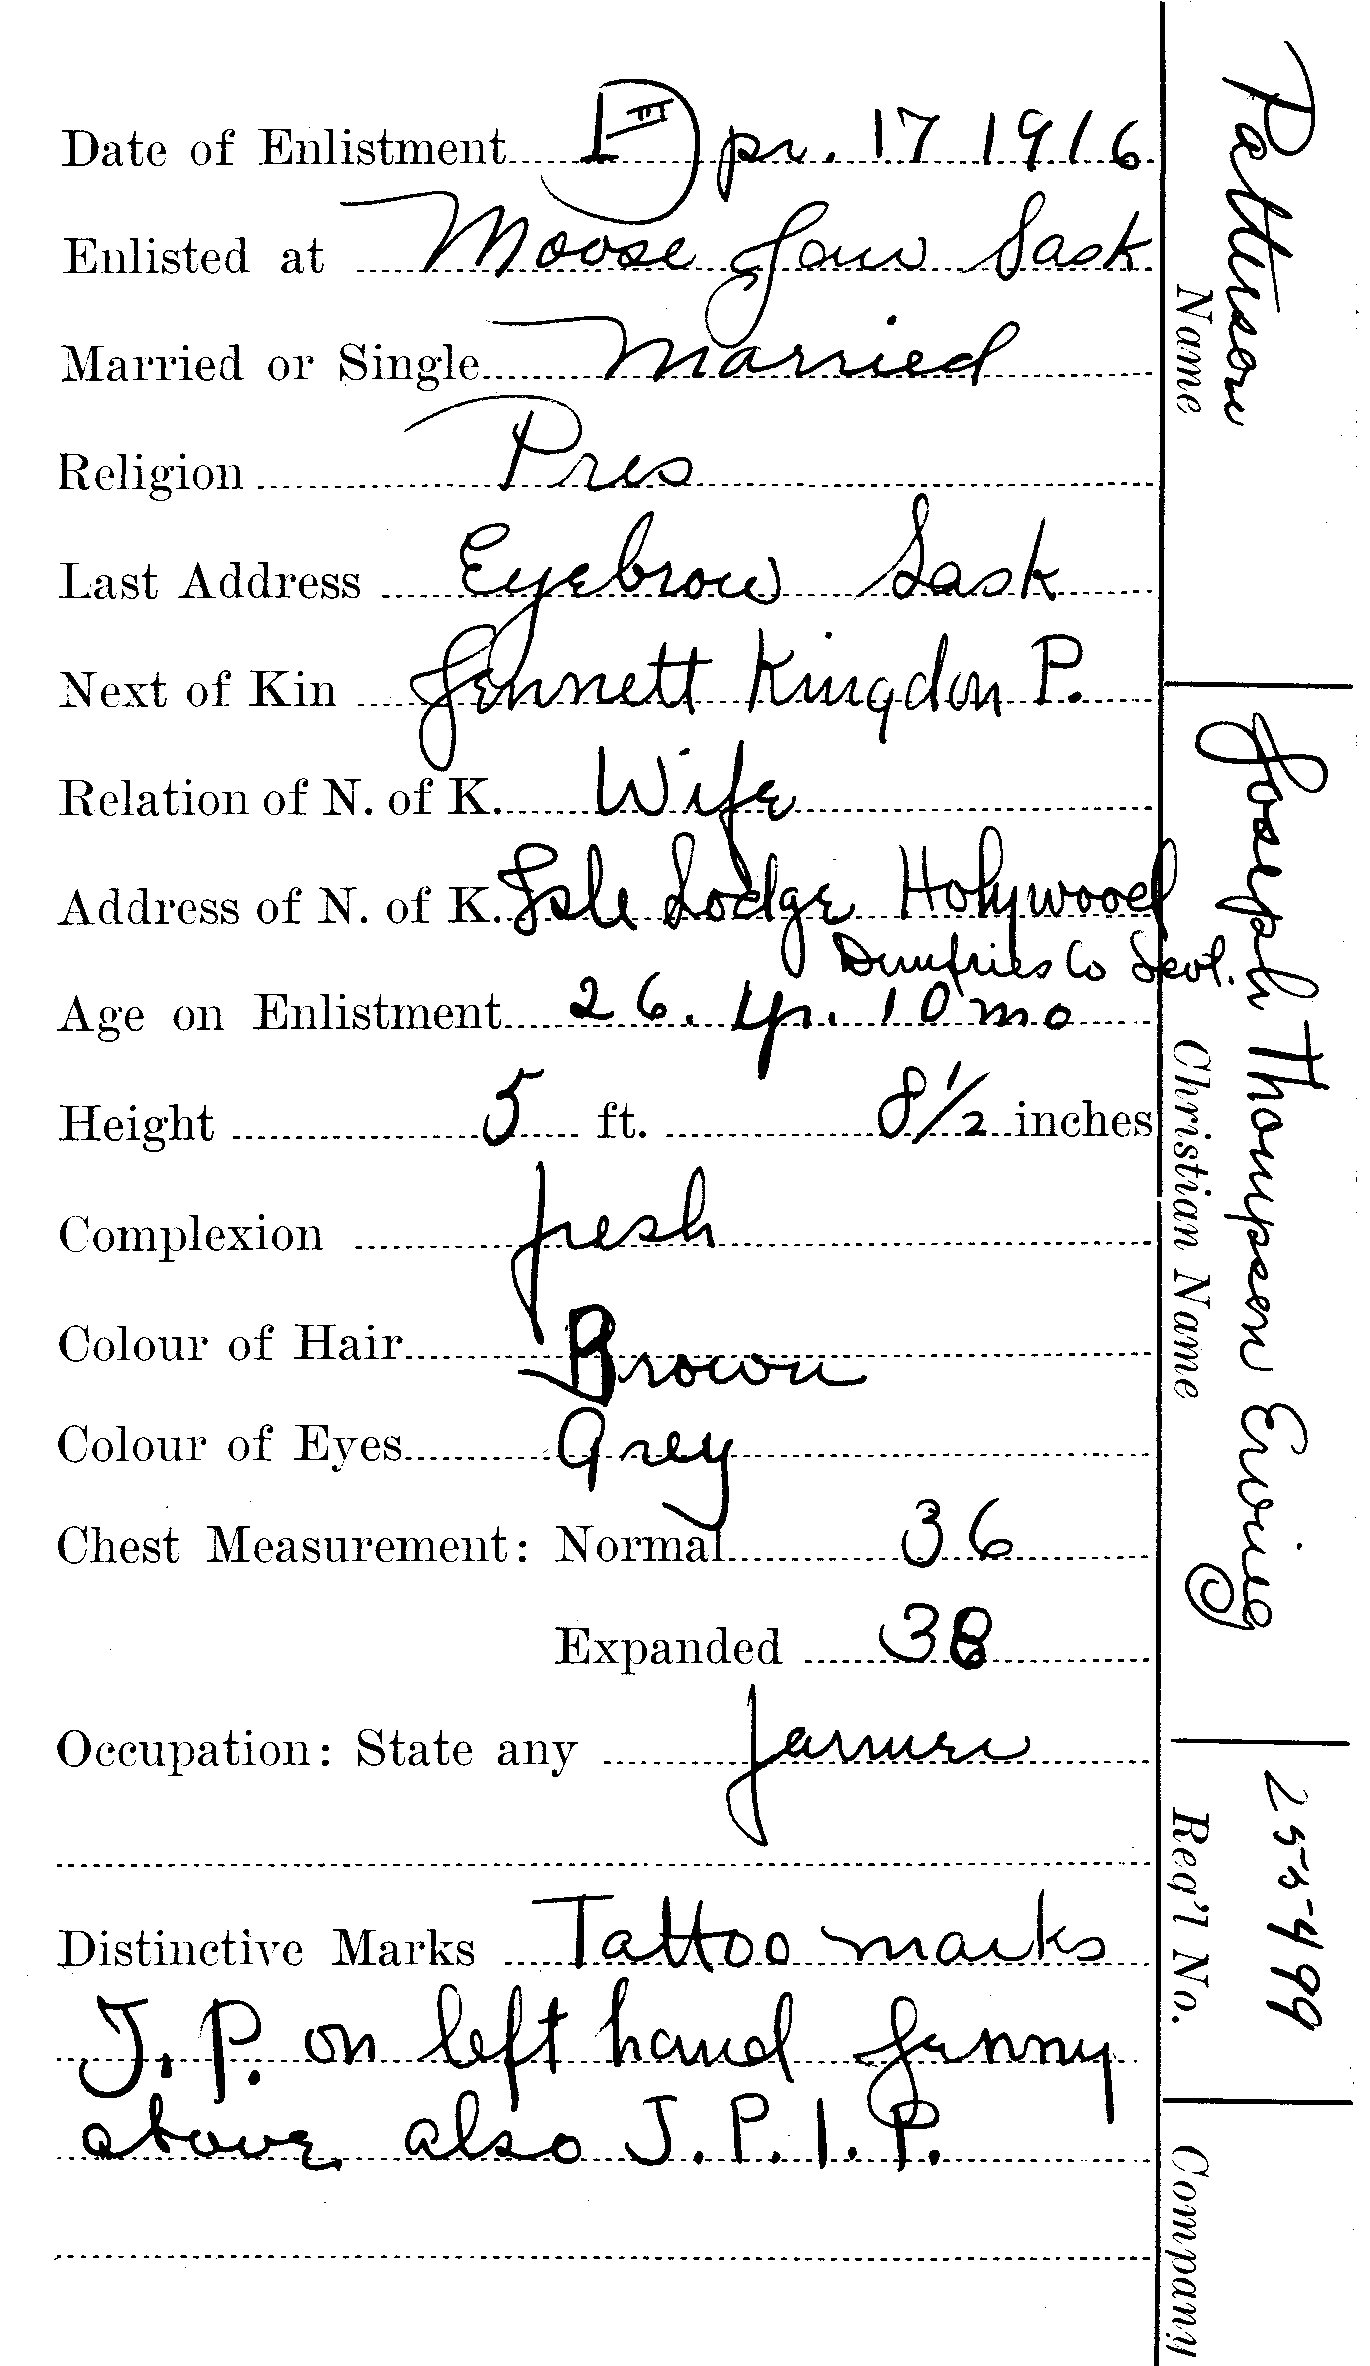 Date of Enlistment Apr. 17 1916
Enlisted at Moose Jaw Sask
Married or Single Married
Religion Pres
Last Address Eyebrow Sask
Next of Kin Jennett Kingdon P.
Relation of N. of K. Wife
Address of N. of K. Isle Lodge Holywood
Dumfries Co Scot.
Age on Enlistment 26. yr. 10 mo
Height 5 ft. 8 1/2 inches
Complexion fresh
Colour of Hair Brown
Colour of Eyes Grey
Chest Measurement: Normal 36
Expanded 38
Occupation: State any farmer
Distinctive Marks Tattoo marks
J. P. on left hand Jenny
above also J. P. I. P.
Patterson
Name
Joseph Thompson Erving
Christian Name
Req'l No.
Company